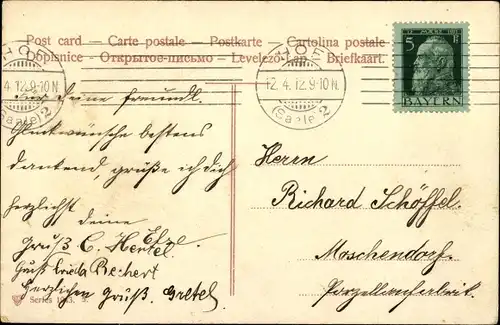 Post card – Carte postale – Postkarte – Cartolina postale
Dopisnice – Открытое-письмо – Levelező-Lap. – Briefkaart.
HOF
12.4.12.9-10N.
(Saale) 2
HOF
4.12.9-10N
(Saale) 2
12. MÄRZ 1911
5 Pf
BAYERN
deine freundl.
Glückwünsche bestens
dankend, grüße ich dich
herzlichst deine
Else.
Gruß C. Hertel
Gruß Frieda Bechert
Herzlichen Gruß. Gretel
Series
Herrn
Richard Schöffel.
Moschendorf.
Porzellanfabrik.